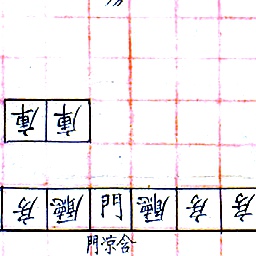 庫 庫
房 廳 門 廳 房 房
含涼門